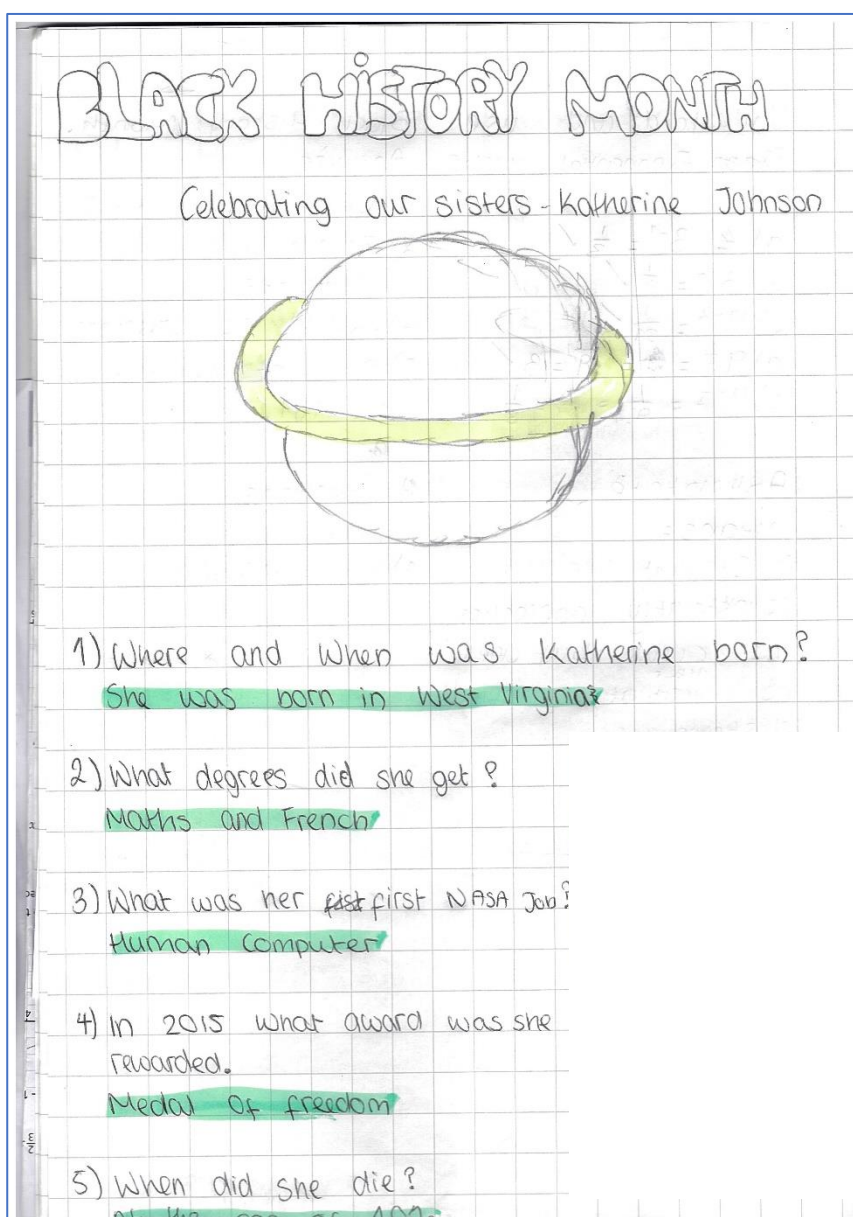 BLACK HISTORY MONTH
Celebrating our sisters - Katherine Johnson
1) Where and When was Katherine born?
She was born in West Virginia
2) What degrees did she get?
Maths and French
3) What was her first NASA Job?
Human computer
4) In 2015 what award was she
rewarded.
Medal Of freedom
5) When did she die?